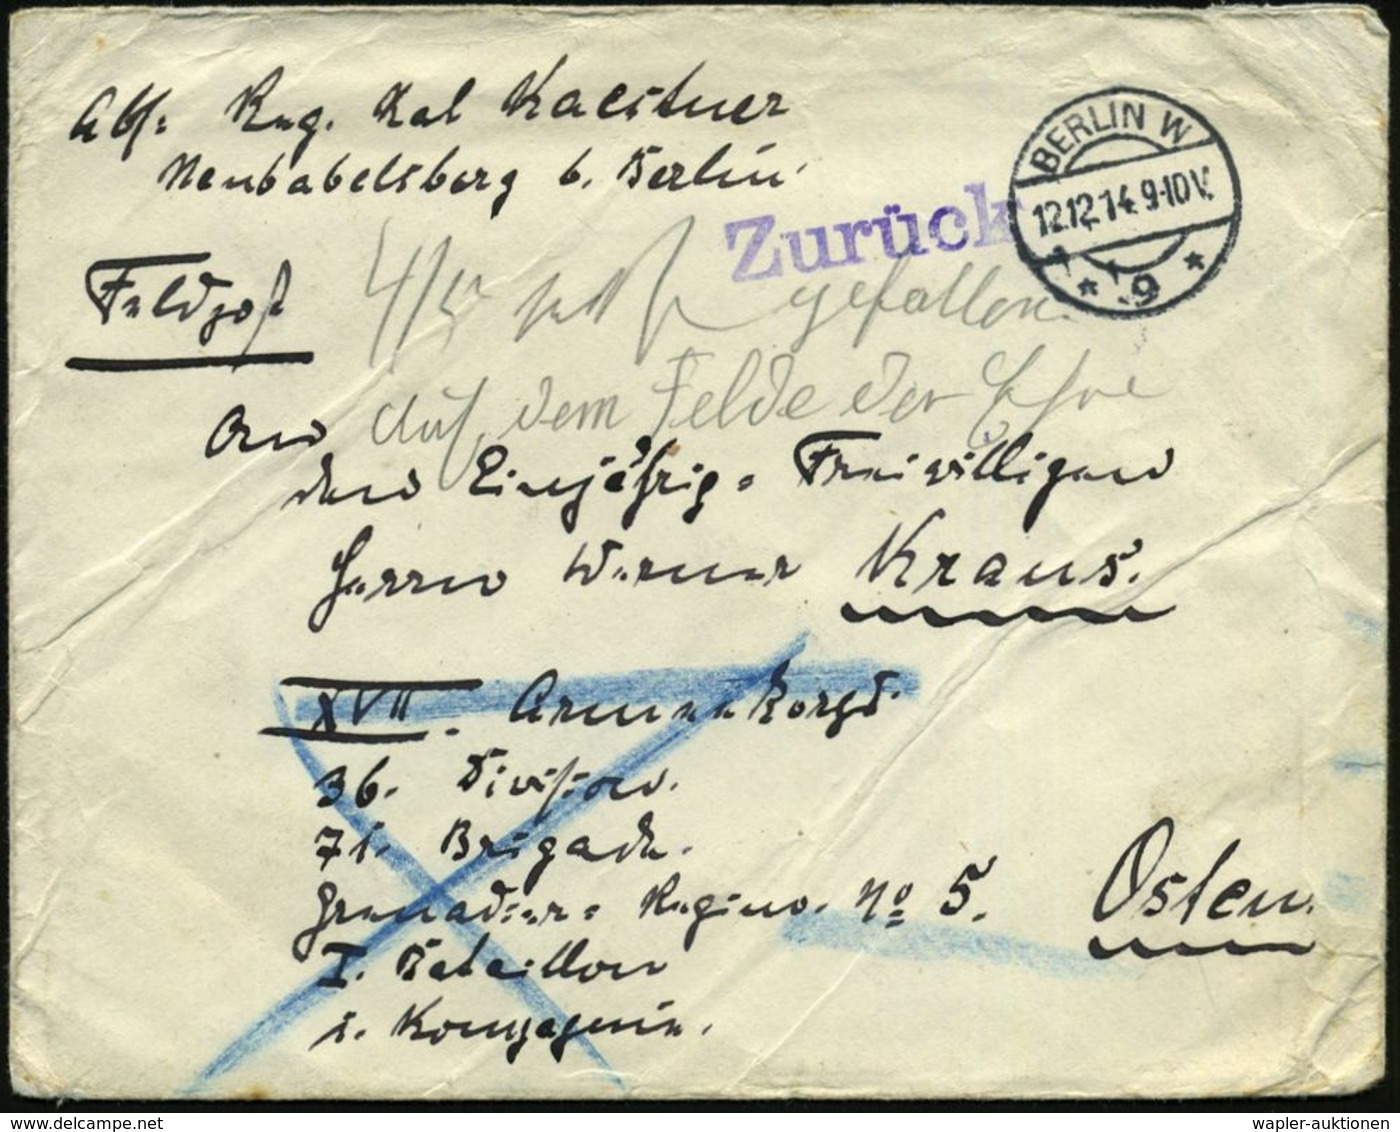 Abs: Reg. Rat Kaestner
Neubabelsberg b. Berlin
Zurück
BERLIN W
12.12.14.9-10V.
* 9 *
Feldpost
gefallen
auf dem Felde der Ehre
An
den Einjährig-Freiwilligen
Herrn Werner Kraus.
XVII. Armeekorps.
36. Division.
71. Brigade.
Grenadier-Regim. No 5. Osten.
I. Bataillon
1. Kompagnie.
wapler-auktionen
www.delcampe.net